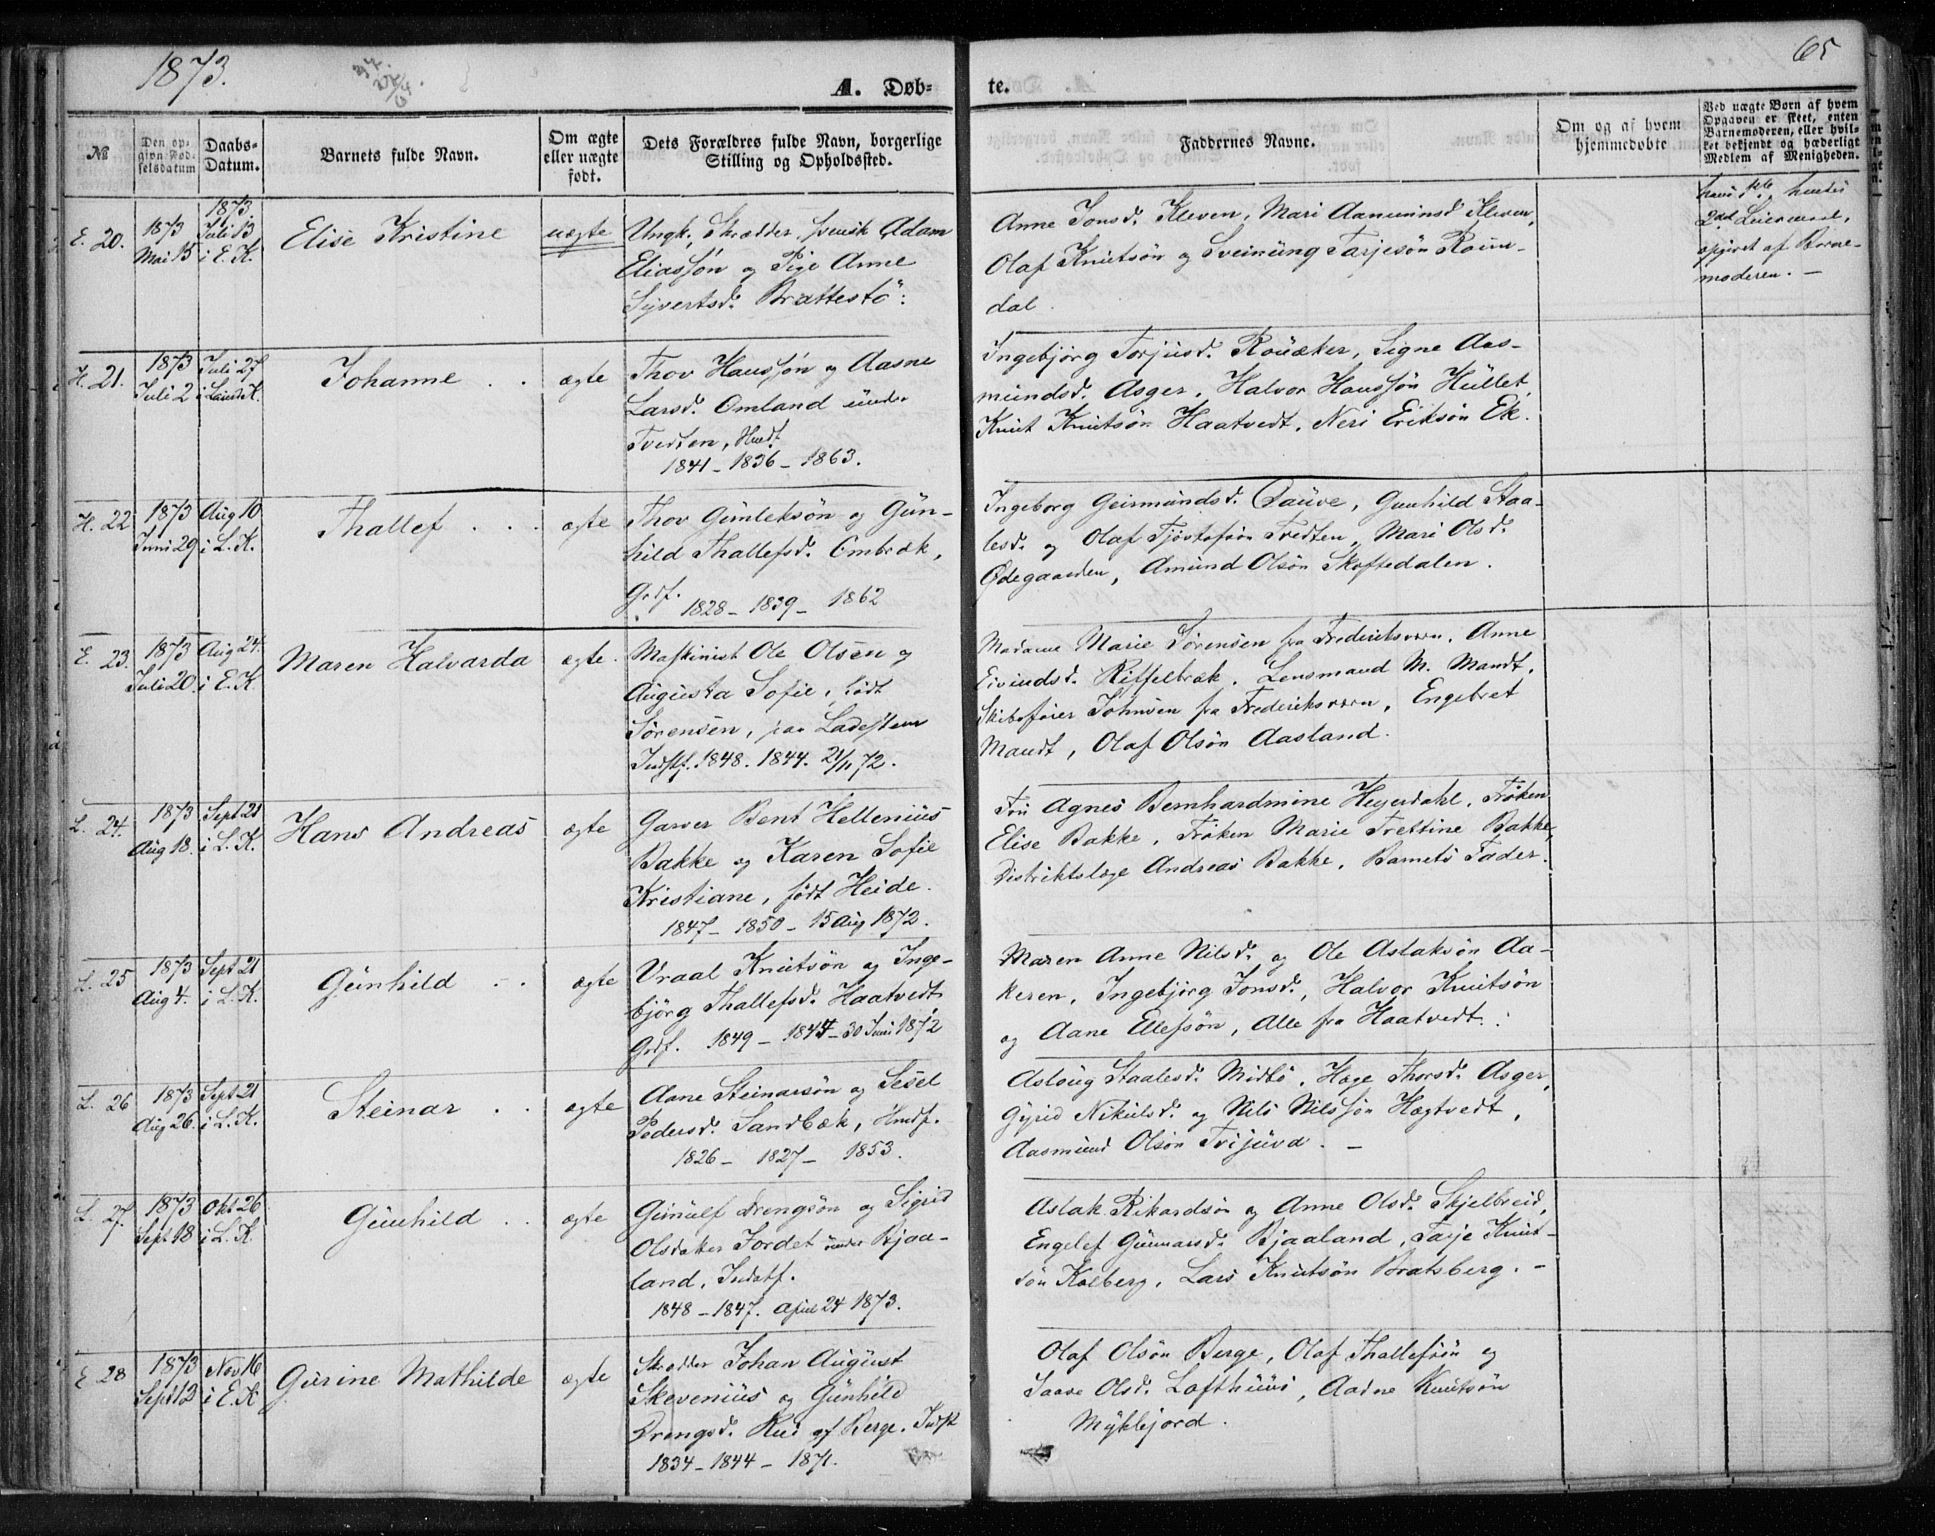 1873.
65
A. Døb-
te.
№
Den op-
givn Fød-
selsdatum
Daabs-
Datum.
Barnets fulde Navn.
Om ægte
eller uægte
født.
Dets Forældres fulde Navn, borgerlige
Stilling og Opholdssted.
Faddernes Navne.
Om og af hvem
hjemmedøbte
Ved uægte Børn af hvem
Opgaven er skeet, enten
Barnemoderen, eller hvil-
ket bekjendt og hæderligt
Medlem af Menigheden.
E. 20.
1873
Mai 15
1873.
Juli 13
i E. K.
Elise Kristine
uægte
Ungk. Skrædder, svensk Adam
Eliassön og Pige Anne
Syvertsd. Brattestö:
Anne Jonsd. Kleven, Mari Aamundsd Kleven,
Olaf Knutsön og Sveinung Tarjesön Roin-
dal.
hendes
2det Leiermaal,
opgivet af Barne-
moderen. —
H. 21.
1873
Juli 2
Juli 27
i Laurd. K.
Johanne . .
ægte
Thov Hanssön og Aasne
Larsd. Omland under
Tvedten, Husf.
1841 - 1836 - 1863.
Ingebjörg Torjusd. Rouåker, Signe Aas-
mundsd. Asger, Halvor Hanssön Hullet,
Knut Knutsön Haatvedt, Neri Eriksön Ek.
H. 22
1873
Juni 29
Aug 10
i L. K.
Thallef . . .
ægte
Thov Gunleksön og Gun-
hild Thallefsd. Ombræk,
Grdf. 1828 - 1839 - 1862
Ingeborg Geirmundsd. Qauve, Gunhild Staa-
lesd. og Olaf Tjöstofsön Tvedten, Mari Olsd.
Ødegaarden, Amund Olsön Skoftedalen.
E. 23.
1873
Juli 20.
Aug 24.
i E. K.
Maren Halvarda
ægte.
Maskinist Ole Olsen og
Augusta Sofie, født
Sörensen, paa Ladesteen
Indstf. 1848. 1844. 21/11 72.
Madame Marie Sörensen fra Frederiksværn, Anne
Eivindsd. Riffelbræk. Lensmand M. Mandt,
Skibsfører Johnsen fra Frederiksværn, Engebret
Mandt, Olaf Olsön Aasland.
L. 24.
1873
Aug 18.
Sept 21
i L. K.
Hans Andreas
ægte
Garver Bent Hellenius
Bakke og Karen Sofie
Kristiane, født Heide.
1847 - 1850 - 15 Aug 1872.
Fru Agnes Bernhardmine Heyerdahl, Frøken
Elise Bakke, Frøken Marie Frettine Bakke,
Distriktslæge Andreas Bakke, Barnets Fader.
L. 25
1873
Aug 4.
Sept 21
i L. K.
Gunhild . .
ægte
Vraal Knutsön og Inge-
björg Thallefsd. Haatvedt
Grdf. 1849 - 1844 - 30 Juni 1872
Maren Anne Nilsd. og Ole Aslaksön Aa-
keren, Ingebjörg Jonsd., Halvor Knutsön
og Aane Ellefsön, Alle fra Haatvedt.
L. 26
1873
Aug 26.
Sept 21
i L. K.
Steinar . .
ægte
Aane Steinarsön og Sesel
Pedersd. Sandbæk, Hmdf.
1826 - 1827 - 1853.
Asloug Staalesd. Midbö, Hæge Thorsd. Asger,
Gyrid Nikulsd. og Nils Nilssön Hægtvedt,
Aasmund Olsön Trijuva. —
L. 27.
1873
Sept 18
Okt 26
i L. K.
Gunhild . .
ægte
Gunulf Drengsön og Sigrid
Olsdatter Jordet under Bjaa-
land, Indstf.
1848 - 1847. April 24 1873.
Aslak Rikardsön og Anne Olsd. Skjelbreid,
Engelef Gunnarsd. Bjaaland, Tarje Knut-
sön Kolberg, Lars Knutsön Bratsberg. —
E 28
1873
Sept 12
Nov 16
i E. K
Gurine Mathilde
ægte
Skrædder Johan August
Skevenius og Gunhild
Drengsd. Rui af Berge. Indst
1834 - 1844 - 1871.
Olaf Olsön Berge, Olaf Thallefsön og
Saave Olsd. Lofthuus, Aadne Knutsön
Myklejord.